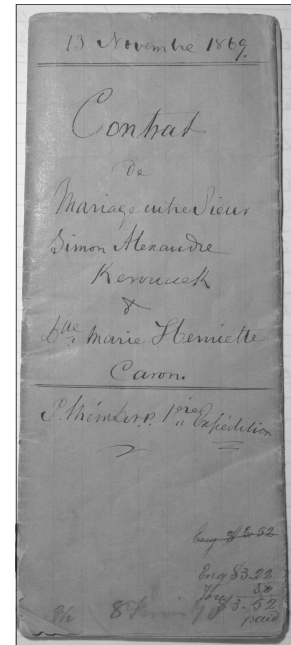 13 Novembre 1869.
Contrat
De
Mariage entre Sieur
Simon Alexandre
Kerouack
&
Dlle Marie Henriette
Caron.
1ère Expédition
Enq $3.52
Enq $3.22
30
$3.52
paid